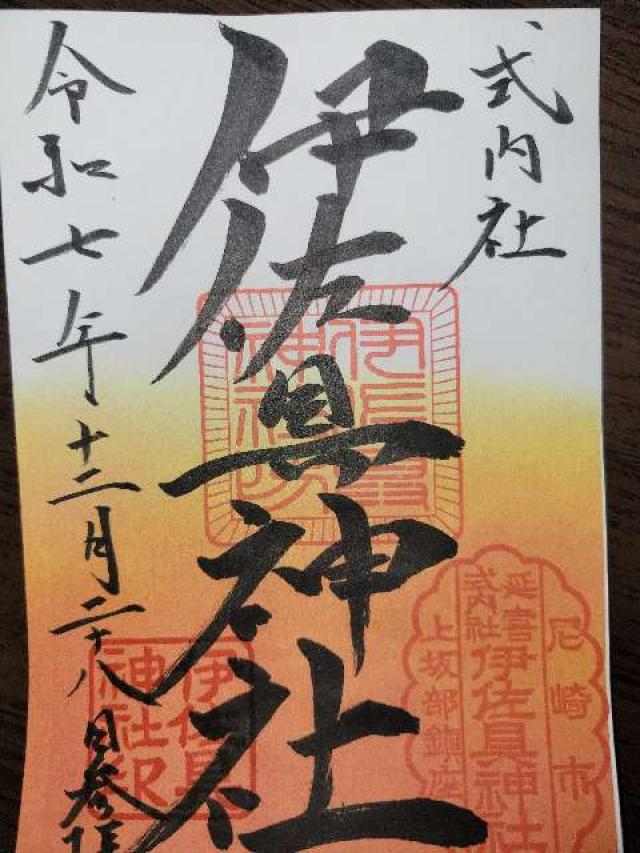 式内社
伊佐具神社
令和七年十二月二十八日参拝
尼崎市
延喜
式内社
伊佐具神社
上坂部鎮座
伊佐具
神社印